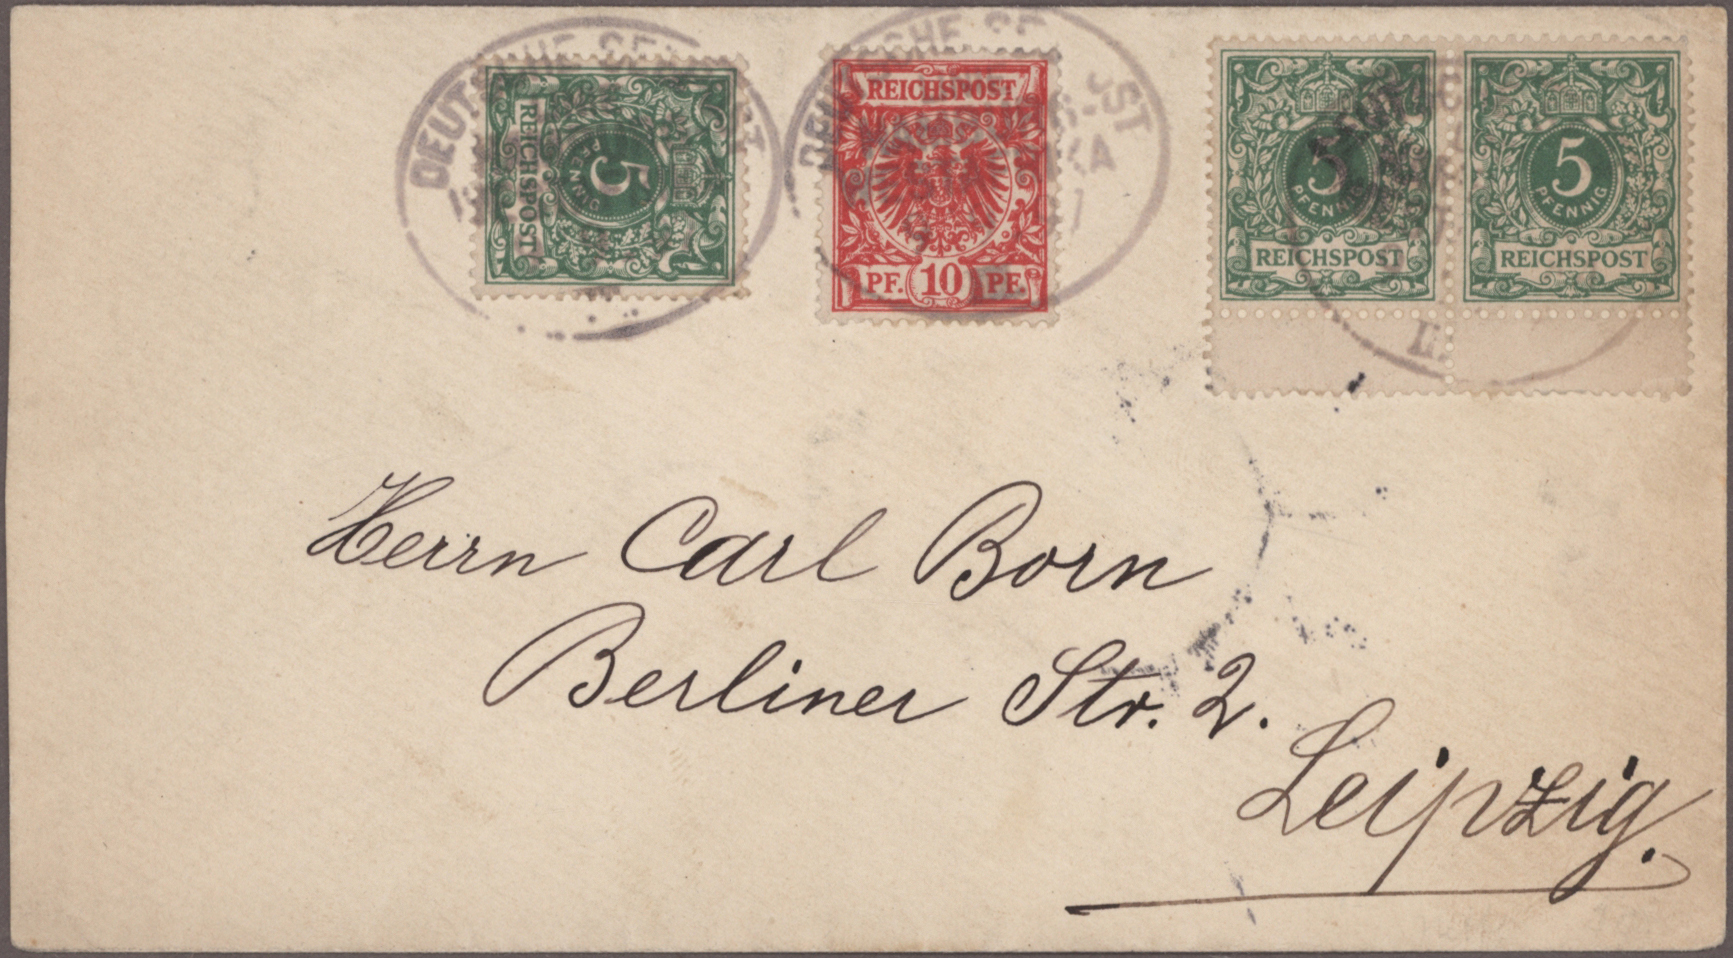 DEUTSCHE
REICHSPOST
5
PFENNIG
DEUTSCHE
REICHSPOST
PF. 10 PF.
5
PFENNIG
REICHSPOST
5
PFENNIG
REICHSPOST
Herrn Carl Born
Berliner Str. 2.
Leipzig.